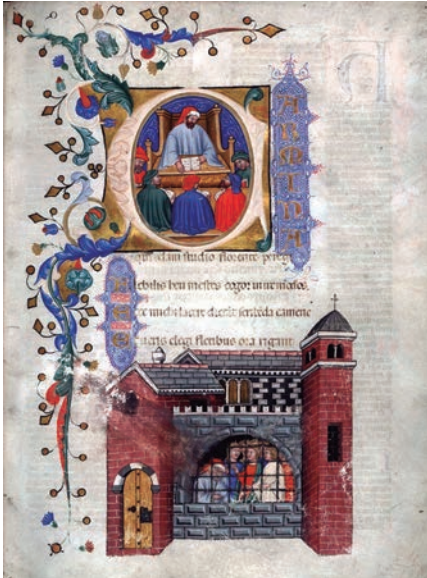 CARMINA
studio florente
lebilis heu mestos cogor inire modos
michi lacere dictant scribenda camene
ueris elegi fletibus ora rigant